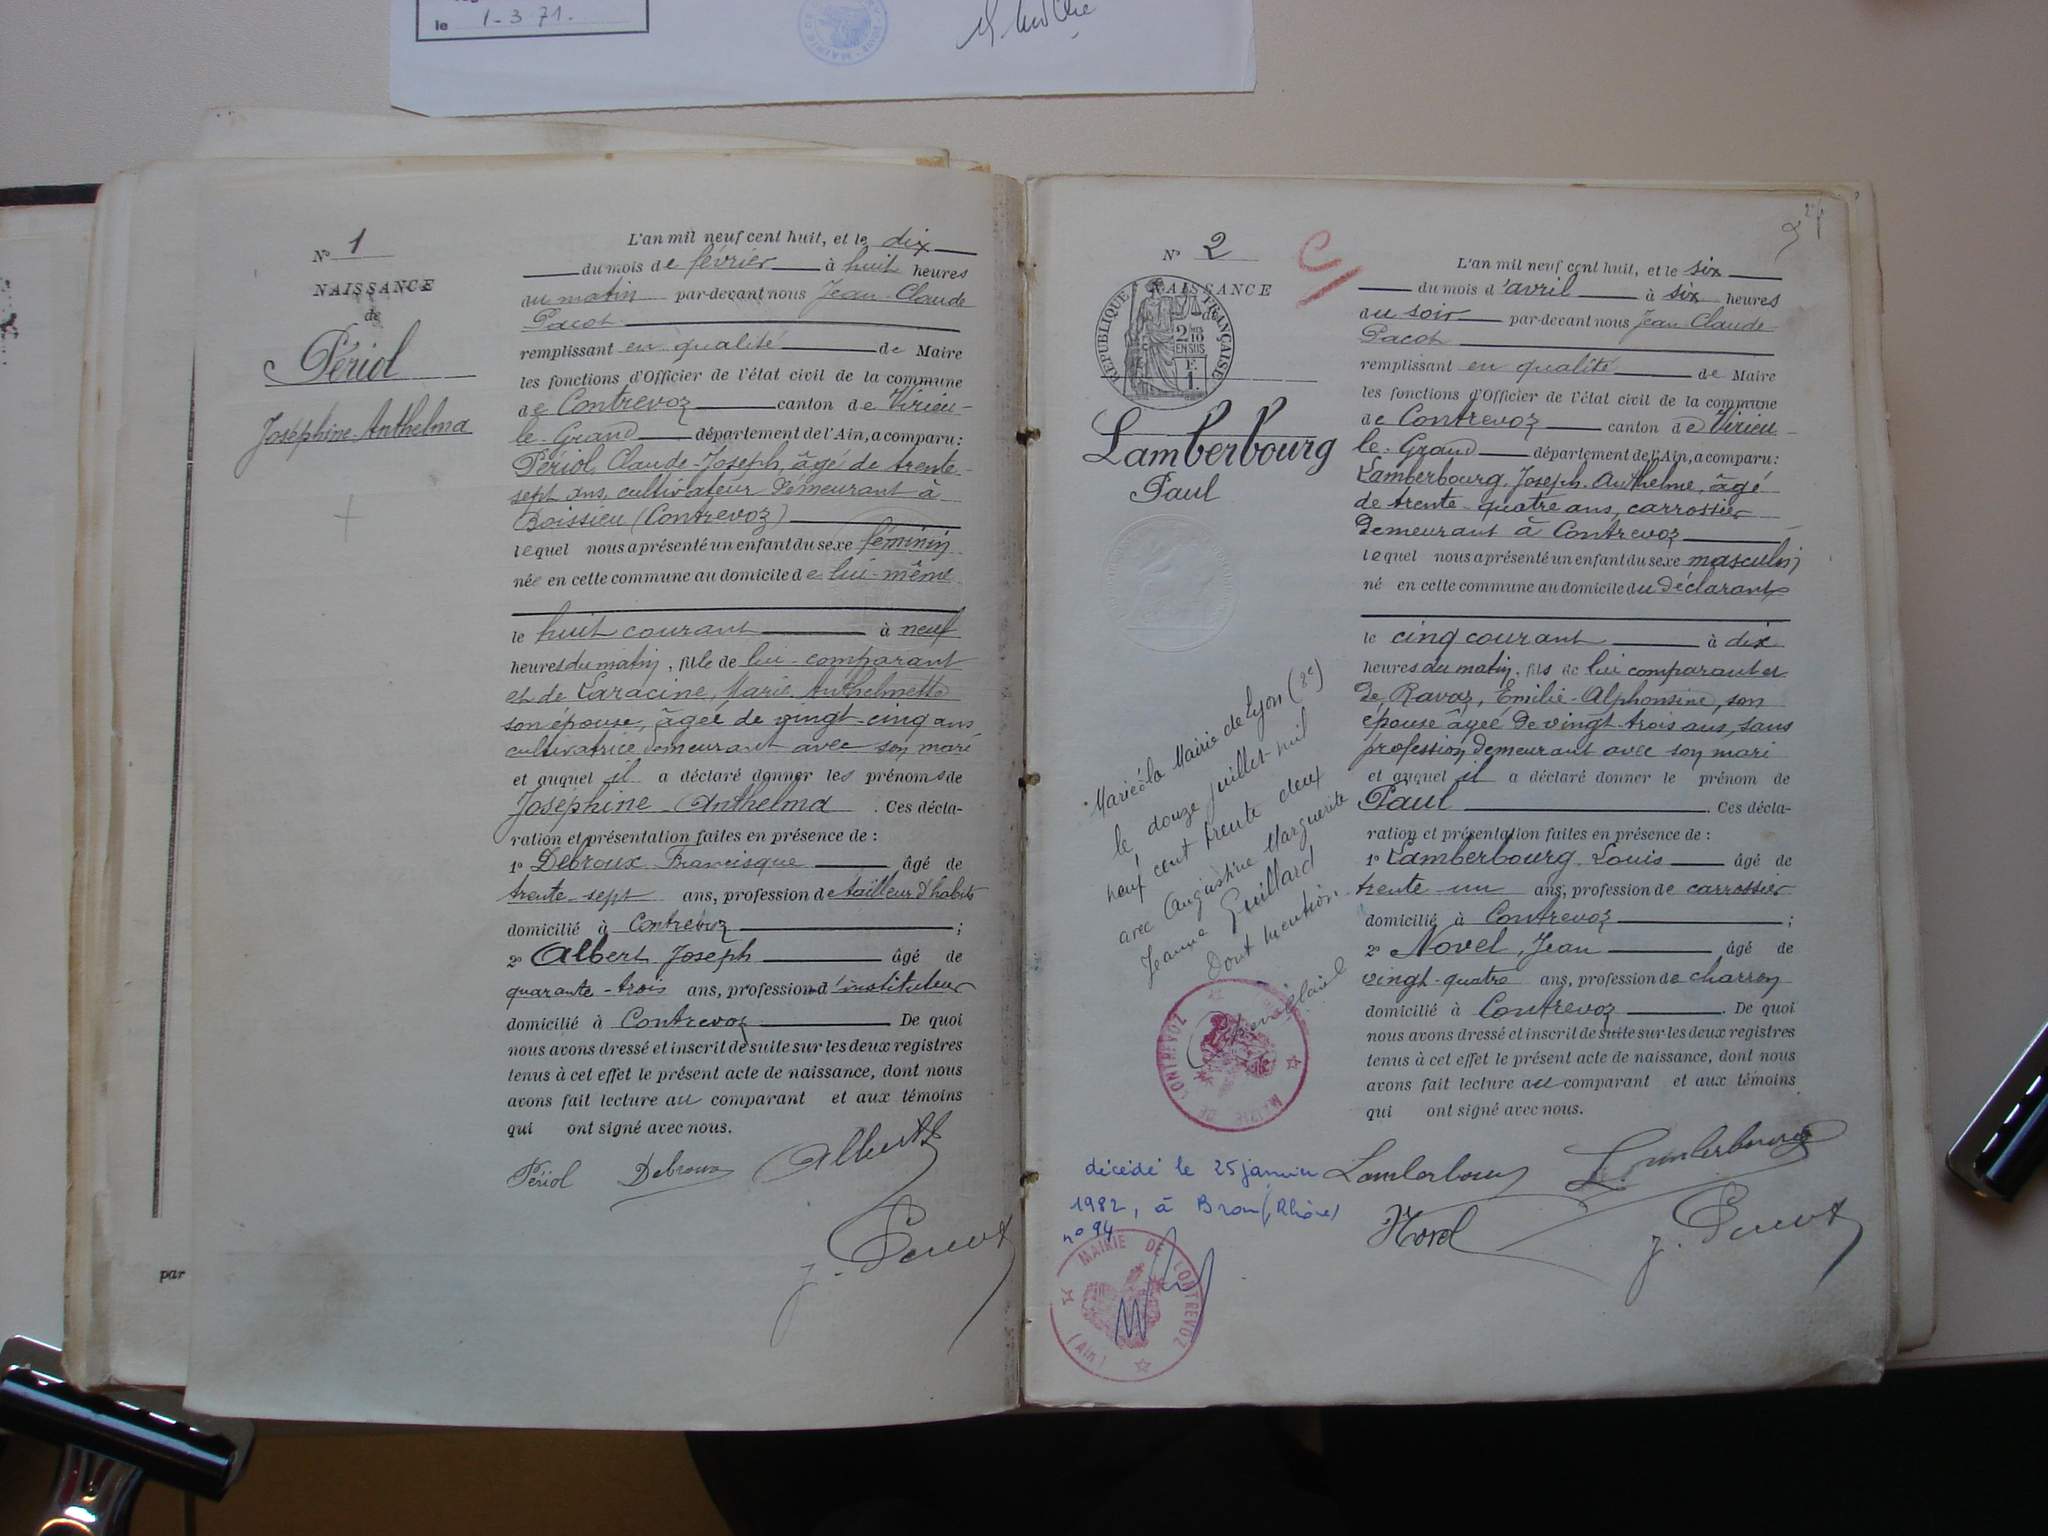 le 1-3 71.
MAIRIE
N° 1
NAISSANCE
de
Périol
Joséphine-Anthelma
L'an mil neuf cent huit, et le dix
du mois de février à huit heures
du matin par-devant nous Jean-Claude
Pacot
remplissant en qualité de Maire
les fonctions d'Officier de l'état civil de la commune
de Contrevoz canton de Virieu-
le-Grand département de l'Ain, a comparu:
Périol Claude-Joseph, âgé de trente-
sept ans, cultivateur demeurant à
Boissieu (Contrevoz)
lequel nous a présenté un enfant du sexe féminin
née en cette commune au domicile de lui-même
le huit courant à neuf
heures du matin, fille de lui-comparant
et de Laracine, Marie Anthelmette
son épouse, âgée de vingt-cinq ans
cultivatrice demeurant avec son mari
et auquel il a déclaré donner les prénoms de
Joséphine-Anthelma. Ces décla-
ration et présentation faites en présence de :
1° Debroux Francisque âgé de
trente-sept ans, profession de tailleur d'habits
domicilié à Contrevoz ;
2° Albert Joseph âgé de
quarante-trois ans, profession d'instituteur
domicilié à Contrevoz De quoi
nous avons dressé et inscrit de suite sur les deux registres
tenus à cet effet le présent acte de naissance, dont nous
avons fait lecture au comparant et aux témoins
qui ont signé avec nous.
Périol Debroux Albert
J. Pacot
par
N° 2
NAISSANCE
de
REPUBLIQUE FRANÇAISE
2/10 EN SUS
F. 1.
Lamberbourg
Paul
L'an mil neuf cent huit, et le six
du mois d'avril à six heures
du soir par-devant nous Jean Claude
Pacot
remplissant en qualité de Maire
les fonctions d'Officier de l'état civil de la commune
de Contrevoz canton de Virieu-
le-Grand département de l'Ain, a comparu:
Lamberbourg, Joseph-Anthelme, âgé
de trente-quatre ans, carrossier
demeurant à Contrevoz
lequel nous a présenté un enfant du sexe masculin
né en cette commune au domicile du déclarant
le cinq courant à dix
heures du matin, fils de lui comparant et
de Ravaz, Emilie-Alphonsine, son
épouse âgée de vingt-trois ans, sans
profession demeurant avec son mari
et auquel il a déclaré donner le prénom de
Paul. Ces décla-
ration et présentation faites en présence de :
1° Lamberbourg Louis âgé de
trente-un ans, profession de carrossier
domicilié à Contrevoz ;
2° Novel, Jean âgé de
vingt-quatre ans, profession de charron
domicilié à Contrevoz. De quoi
nous avons dressé et inscrit de suite sur les deux registres
tenus à cet effet le présent acte de naissance, dont nous
avons fait lecture au comparant et aux témoins
qui ont signé avec nous.
Marié à la Mairie de Lyon (8e)
le douze juillet mil
neuf cent trente deux
avec Augustine Marguerite
Jeanne Guillard
Dont mention.
MAIRIE DE CONTREVOZ
décédé le 25 janvier
1982, à Bron (Rhône)
n° 94
MAIRIE DE CONTREVOZ
(Ain)
Lamberbourg L. Lamberbourg
Novel
J. Pacot